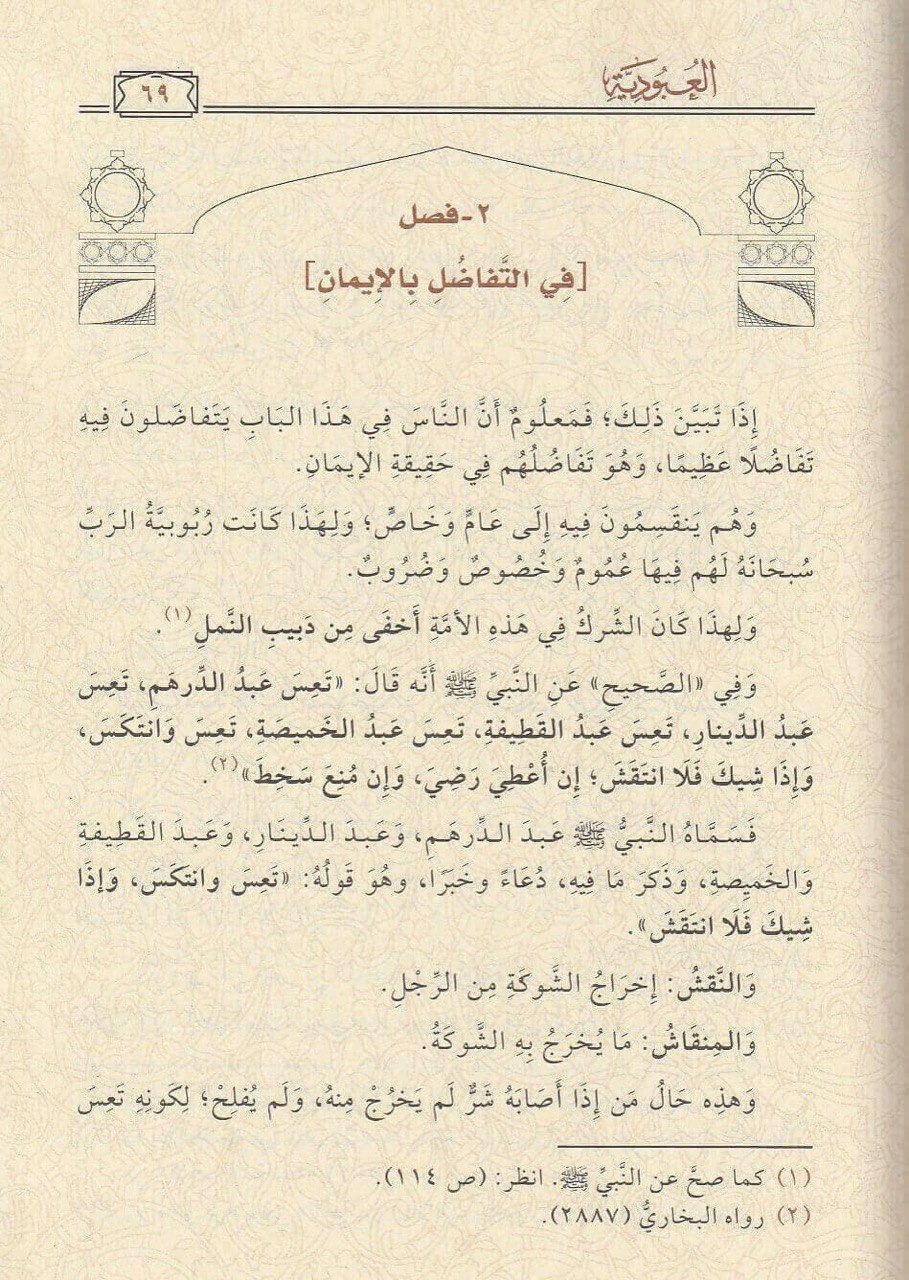 العُبُودِيَّةِ
٦٩
٢- فصل
[فِي التَّفاضُلِ بِالإِيمانِ]
إِذَا تَبَيَّنَ ذَلِكَ؛ فَمَعلُومٌ أَنَّ النَّاسَ فِي هَذَا البَابِ يَتَفاضَلونَ فِيهِ
تَفَاضُلًا عَظِيمًا، وَهُوَ تَفَاضُلُهُم فِي حَقِيقةِ الإيمَانِ.
وَهُم يَنقَسِمُونَ فِيهِ إِلَى عَامٍّ وَخَاصٍّ؛ وَلِهَذَا كَانَت رُبُوبيَّةُ الرَبِّ
سُبحَانَهُ لَهُم فِيهَا عُمُومٌ وَخُصُوصٌ وَضُرُوبٌ.
وَلِهذَا كَانَ الشِّركُ فِي هَذهِ الأمَّةِ أَخفَى مِن دَبيبِ النَّملِ(١).
وَفِي «الصَّحيحِ» عَنِ النَّبيِّ ﷺ أَنَّه قَالَ: «تَعِسَ عَبدُ الدِّرهَمِ، تَعِسَ
عَبدُ الدِّينارِ، تَعِسَ عَبدُ القَطِيفةِ، تَعِسَ عَبدُ الخَميصَةِ، تَعِسَ وَانتَكَسَ،
وَإِذَا شِيكَ فَلَا انتَقَشَ؛ إِن أُعْطِيَ رَضِيَ، وَإِن مُنِعَ سَخِطَ»(٢).
فَسَمَّاهُ النَّبيُّ ﷺ عَبدَ الدِّرهَمِ، وَعَبدَ الدِّينَارِ، وَعَبدَ القَطِيفةِ
وَالخَميِصةِ، وَذَكرَ مَا فِيهِ، دُعَاءً وخَبَرًا، وهُوَ قَولُهُ: «تَعِسَ وانتَكَسَ، وَإذَا
شِيكَ فَلَا انتَقَشَ».
وَالنَّقشُ: إِخرَاجُ الشَّوكَةِ مِن الرِّجْلِ.
وَالمِنقَاشُ: مَا يُخرَجُ بِهِ الشَّوكَةُ.
وَهذِه حَالُ مَن إِذَا أَصَابَهُ شَرٌّ لَم يَخرُجْ مِنهُ، وَلَم يُفلِحْ؛ لِكَونِهِ تَعِسَ
(١) كما صحَّ عن النَّبيِّ ﷺ. انظر: (ص ١١٤).
(٢) رواه البخاريُّ (٢٨٨٧).